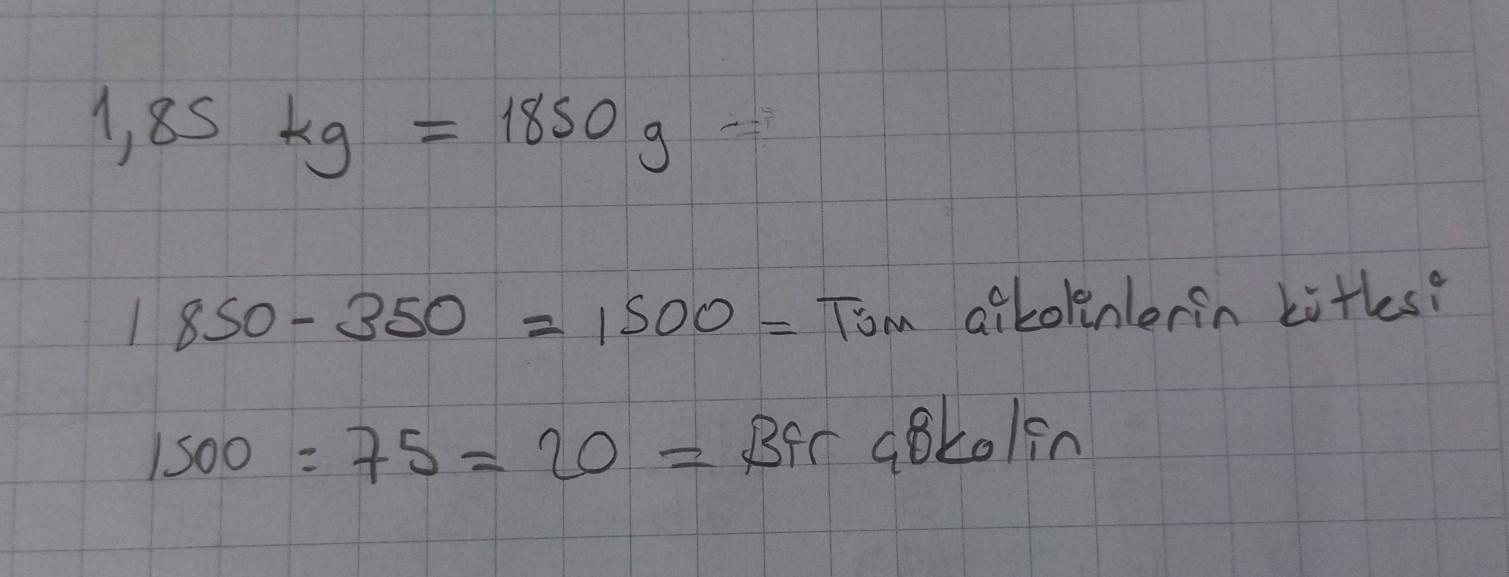 1,85 kg = 1850 g =
1850 - 350 = 1500 = Tüm çikolinlerin kütlesi
1500 : 75 = 20 = Bir çökolin